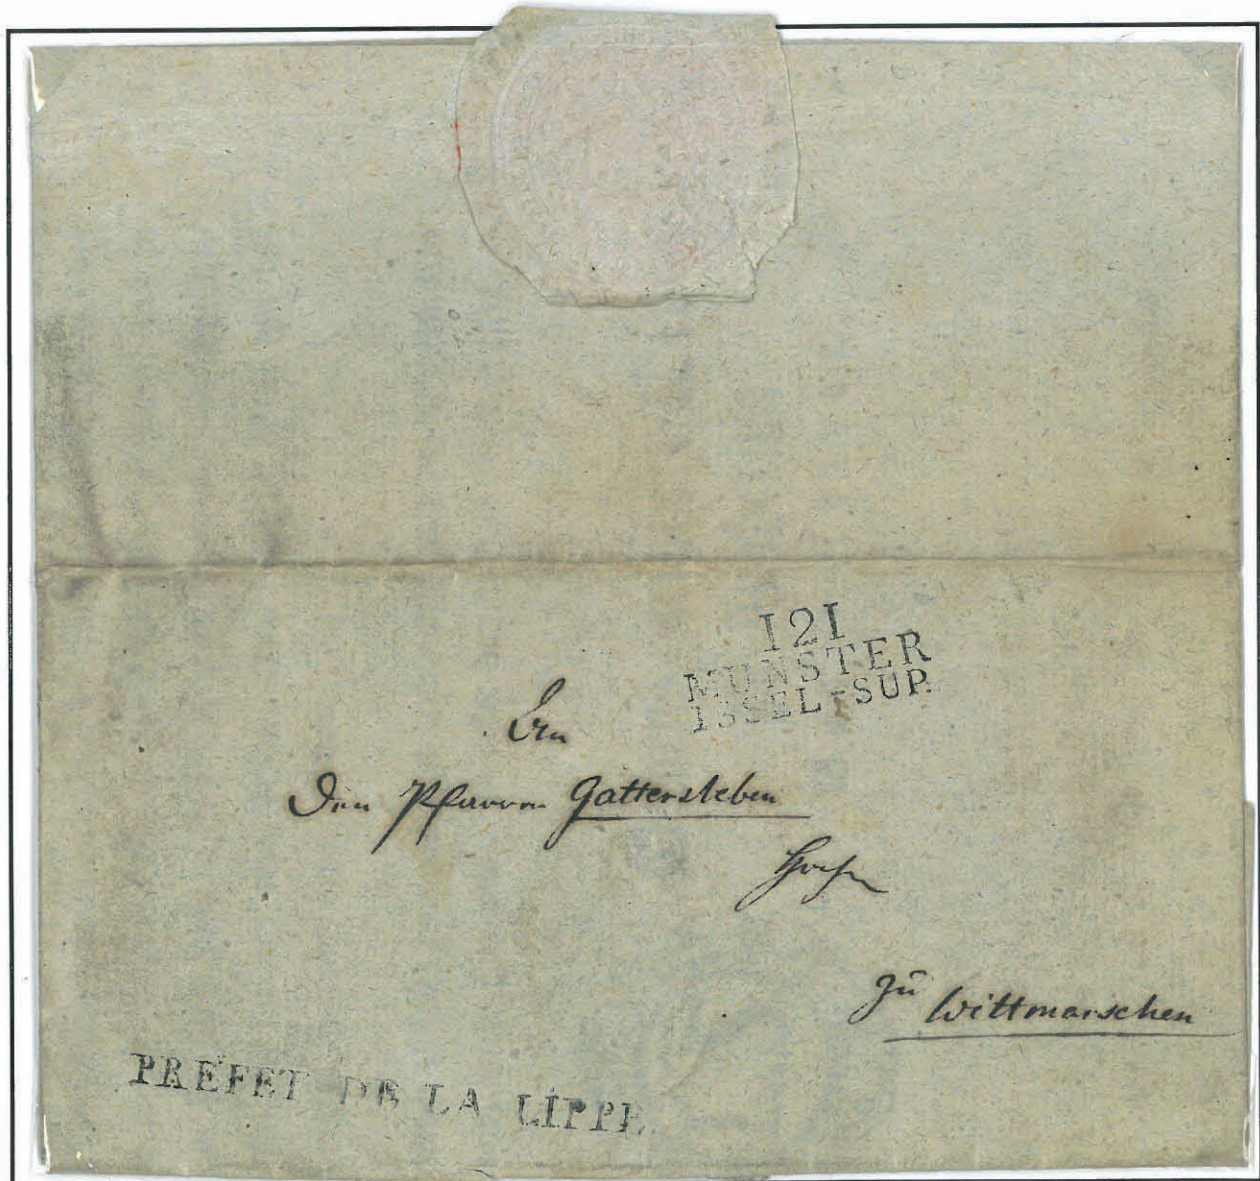 121
MUNSTER
ISSEL-SUP.
An
Den Pfarrer Gattersleben
zu Wittmarschen
PREFET DE LA LIPPE